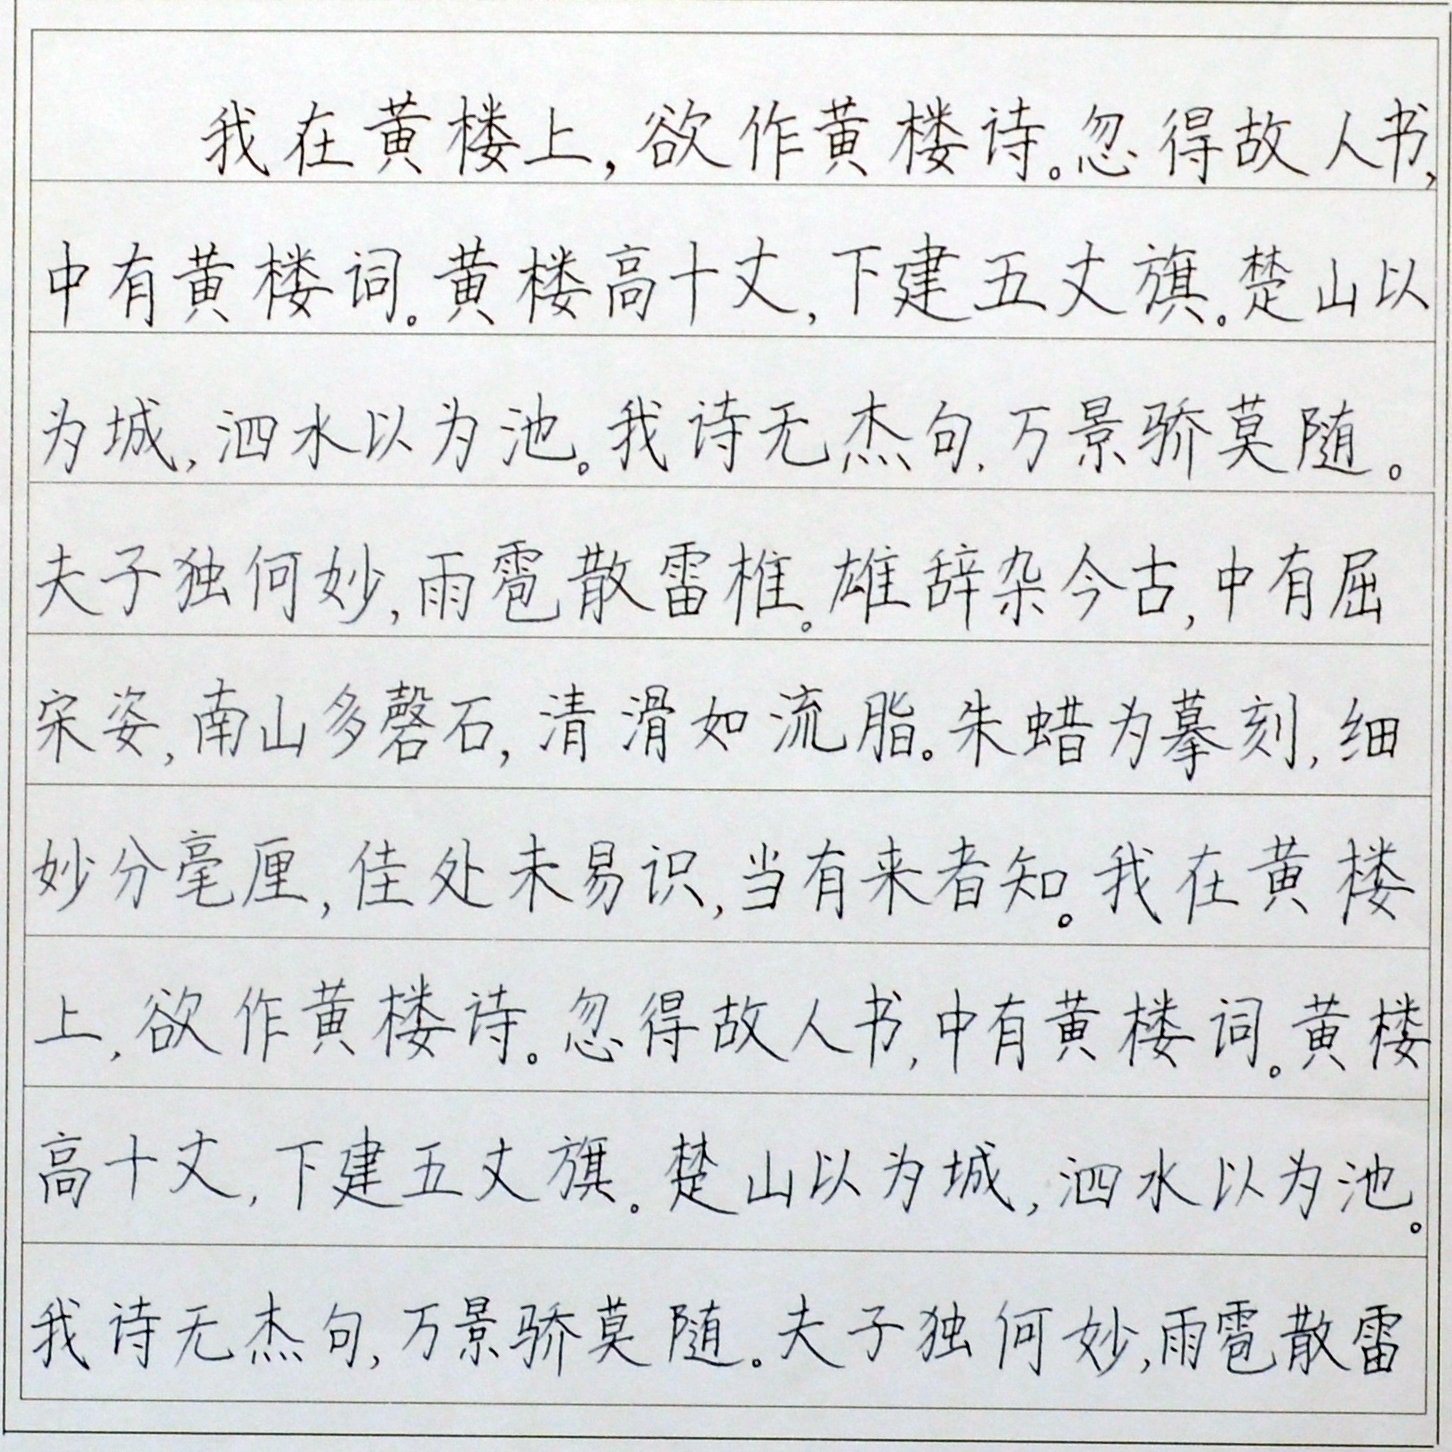 我在黄楼上,欲作黄楼诗。忽得故人书,
中有黄楼词。黄楼高十丈,下建五丈旗。楚山以
为城,泗水以为池。我诗无杰句,万景骄莫随。
夫子独何妙,雨雹散雷椎。雄辞杂今古,中有屈
宋姿,南山多磬石,清滑如流脂。朱蜡为摹刻,细
妙分毫厘,佳处未易识,当有来者知。我在黄楼
上,欲作黄楼诗。忽得故人书,中有黄楼词。黄楼
高十丈,下建五丈旗。楚山以为城,泗水以为池。
我诗无杰句,万景骄莫随。夫子独何妙,雨雹散雷